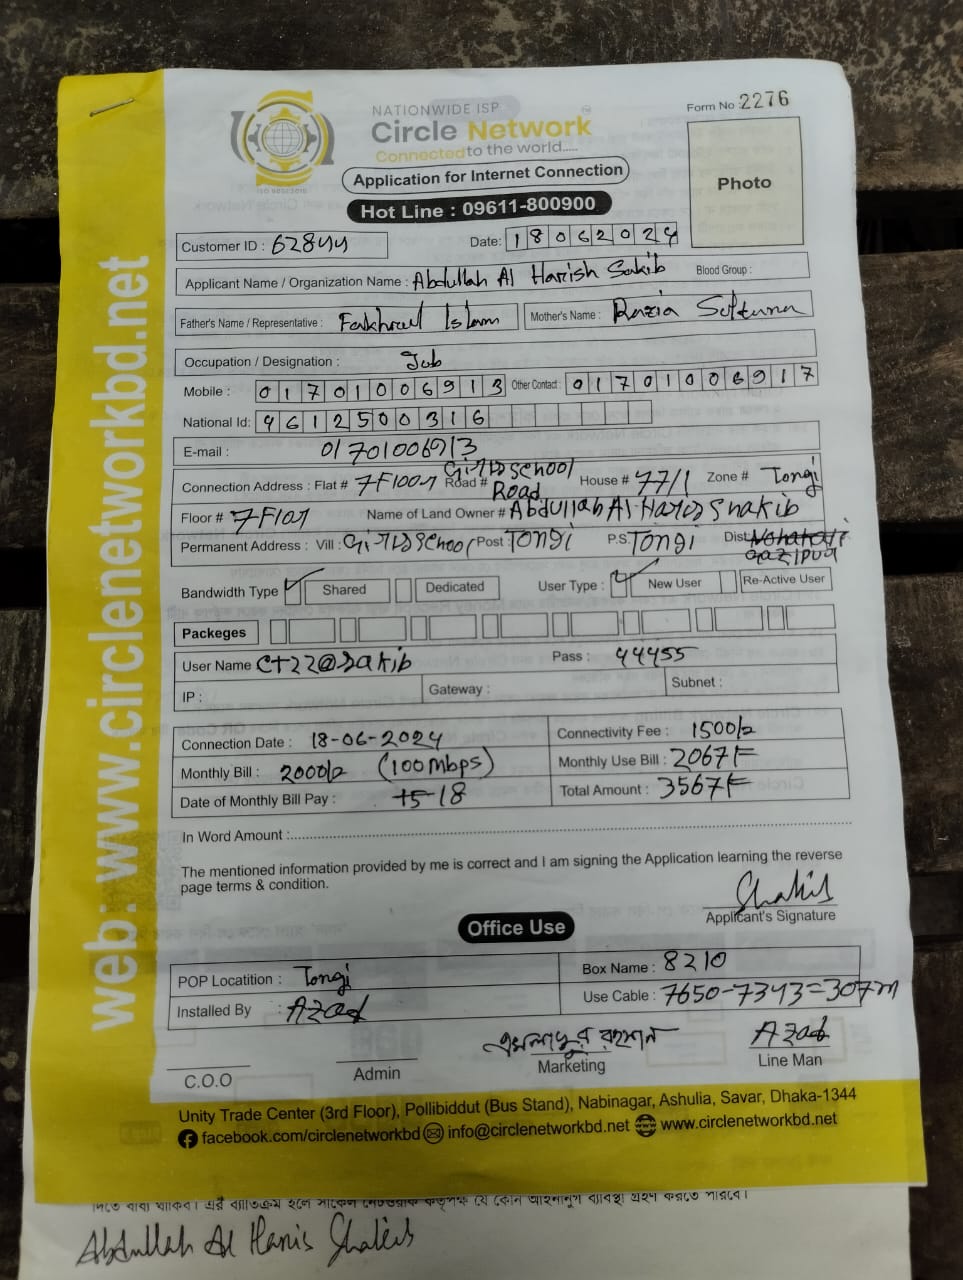 NATIONWIDE ISP
Circle Network
Connected to the world.....
ISO 9001:2015
Form No : 2276
Application for Internet Connection
Photo
Hot Line : 09611-800900
Customer ID : 62844
Date: 18062024
Applicant Name / Organization Name : Abdullah Al Harish Sakib Blood Group :
Father's Name / Representative : Fakhrul Islam Mother's Name : Razia Sultana
Occupation / Designation : Job
Mobile : 01701006913 Other Contact : 01701006917
National Id: 4612500316
E-mail : 01701006913
Connection Address : Flat # 7Floor Road # Girls school Road House # 77/1 Zone # Tongi
Floor # 7Floor Name of Land Owner # Abdullah Al-Haris Shakib
Permanent Address : Vill : Girls School Post Tongi P.S. Tongi Dist. Gazipur
Bandwidth Type ✓ Shared Dedicated User Type : ✓ New User Re-Active User
Packeges
User Name Ct22@Sakib Pass : 44455
IP : Gateway : Subnet :
Connection Date : 18-06-2024 Connectivity Fee : 1500/=
Monthly Bill : 2000/= (100mbps) Monthly Use Bill : 2067
Date of Monthly Bill Pay : 18 Total Amount : 3567
In Word Amount :
The mentioned information provided by me is correct and I am signing the Application learning the reverse
page terms & condition.
Shakib
Applicant's Signature
Office Use
POP Locatition : Tongi Box Name : 8210
Installed By : Azad Use Cable : 7650-7343=307m
Azad
C.O.O Admin Marketing Line Man
Unity Trade Center (3rd Floor), Pollibiddut (Bus Stand), Nabinagar, Ashulia, Savar, Dhaka-1344
facebook.com/circlenetworkbd info@circlenetworkbd.net www.circlenetworkbd.net
web: www.circlenetworkbd.net
দিতে বাধ্য থাকিব। এর ব্যাতিক্রম হলে সার্কেল নেটওয়ার্ক কর্তৃপক্ষ যে কোন আইনানুগ ব্যবস্থা গ্রহণ করতে পারবে।
Abdullah Al Haris Shakib